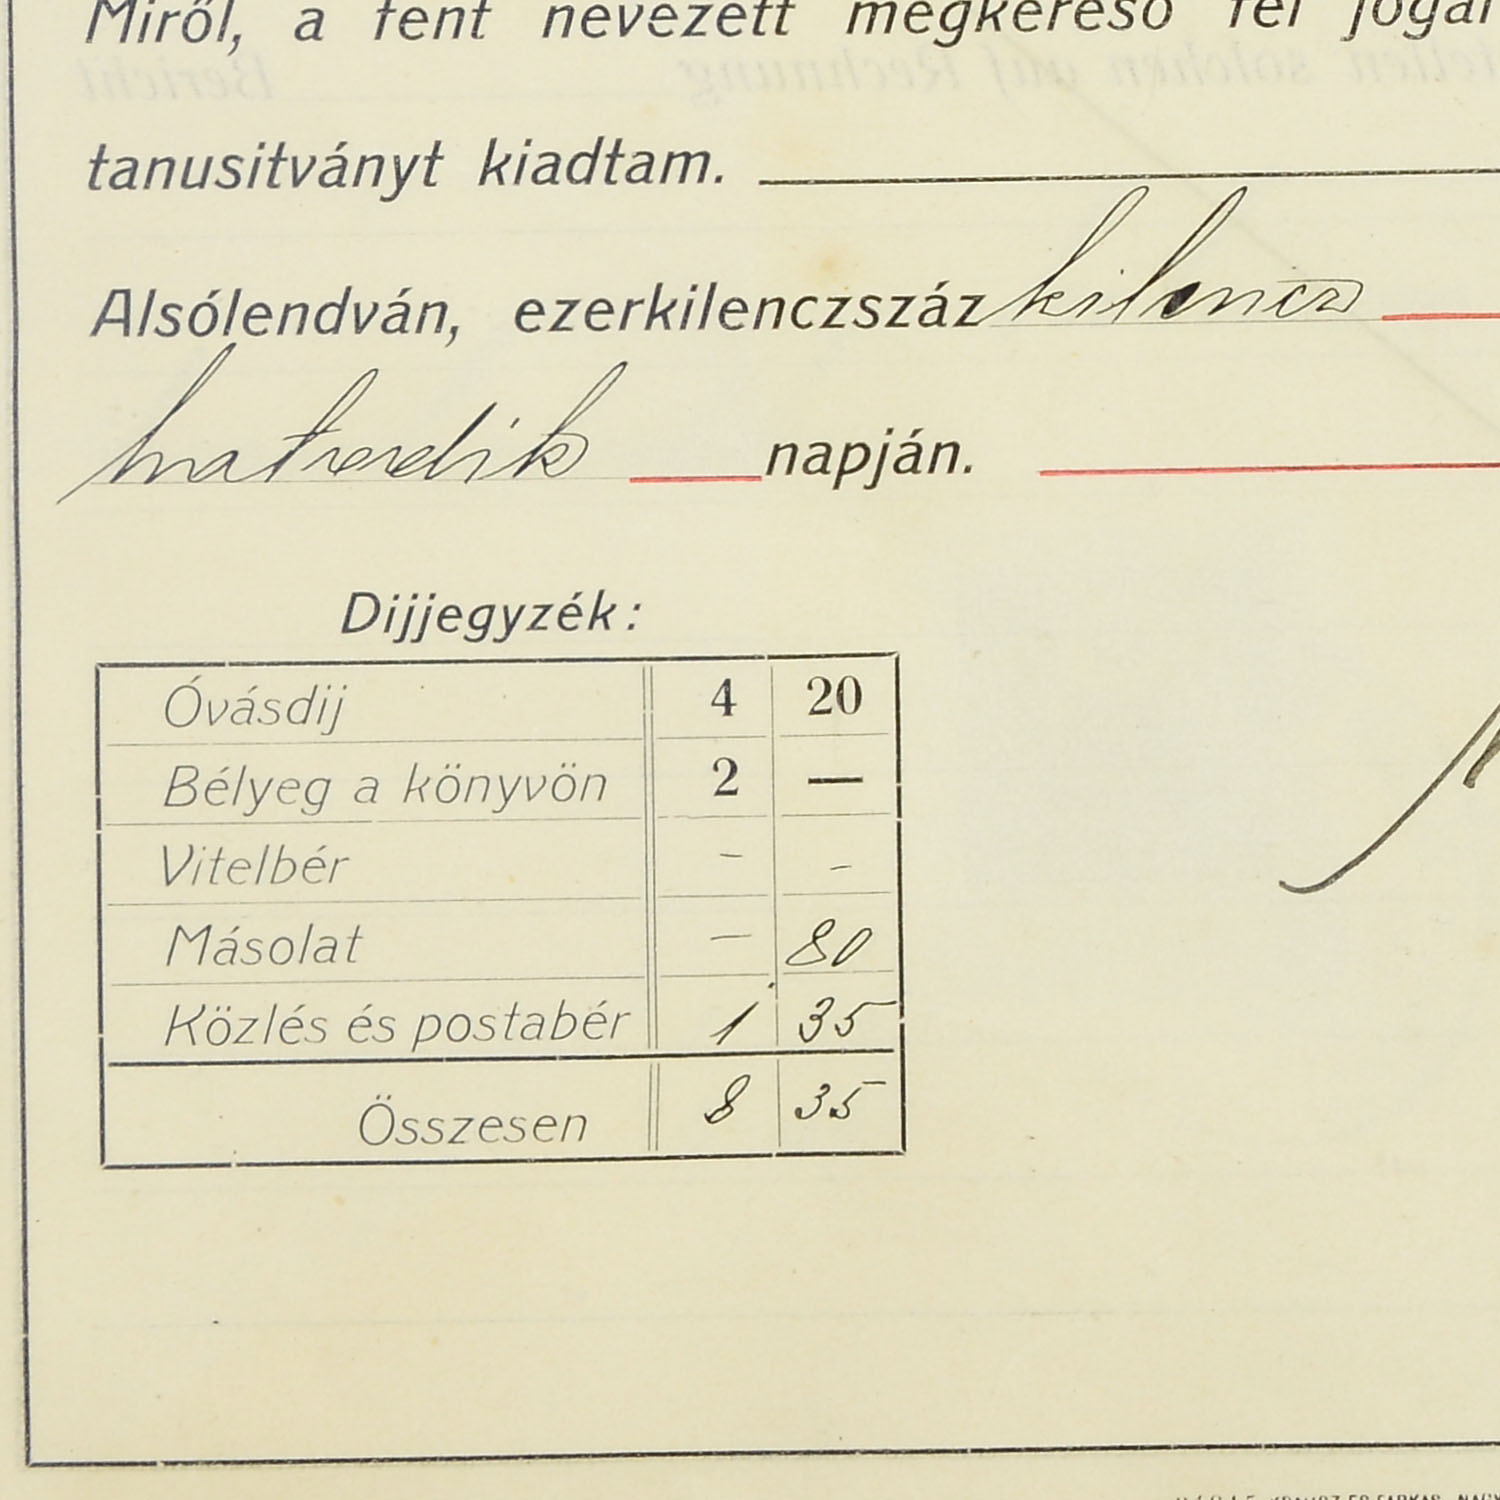 Miről, a fent nevezett megkereső fél jogai
tanusitványt kiadtam.
Alsólendván, ezerkilenczszáz kilencz
hatvadik napján.
Dijjegyzék:
Óvásdij 4 20
Bélyeg a könyvön 2 —
Vitelbér - -
Másolat — 80
Közlés és postabér 1 35
Összesen 8 35